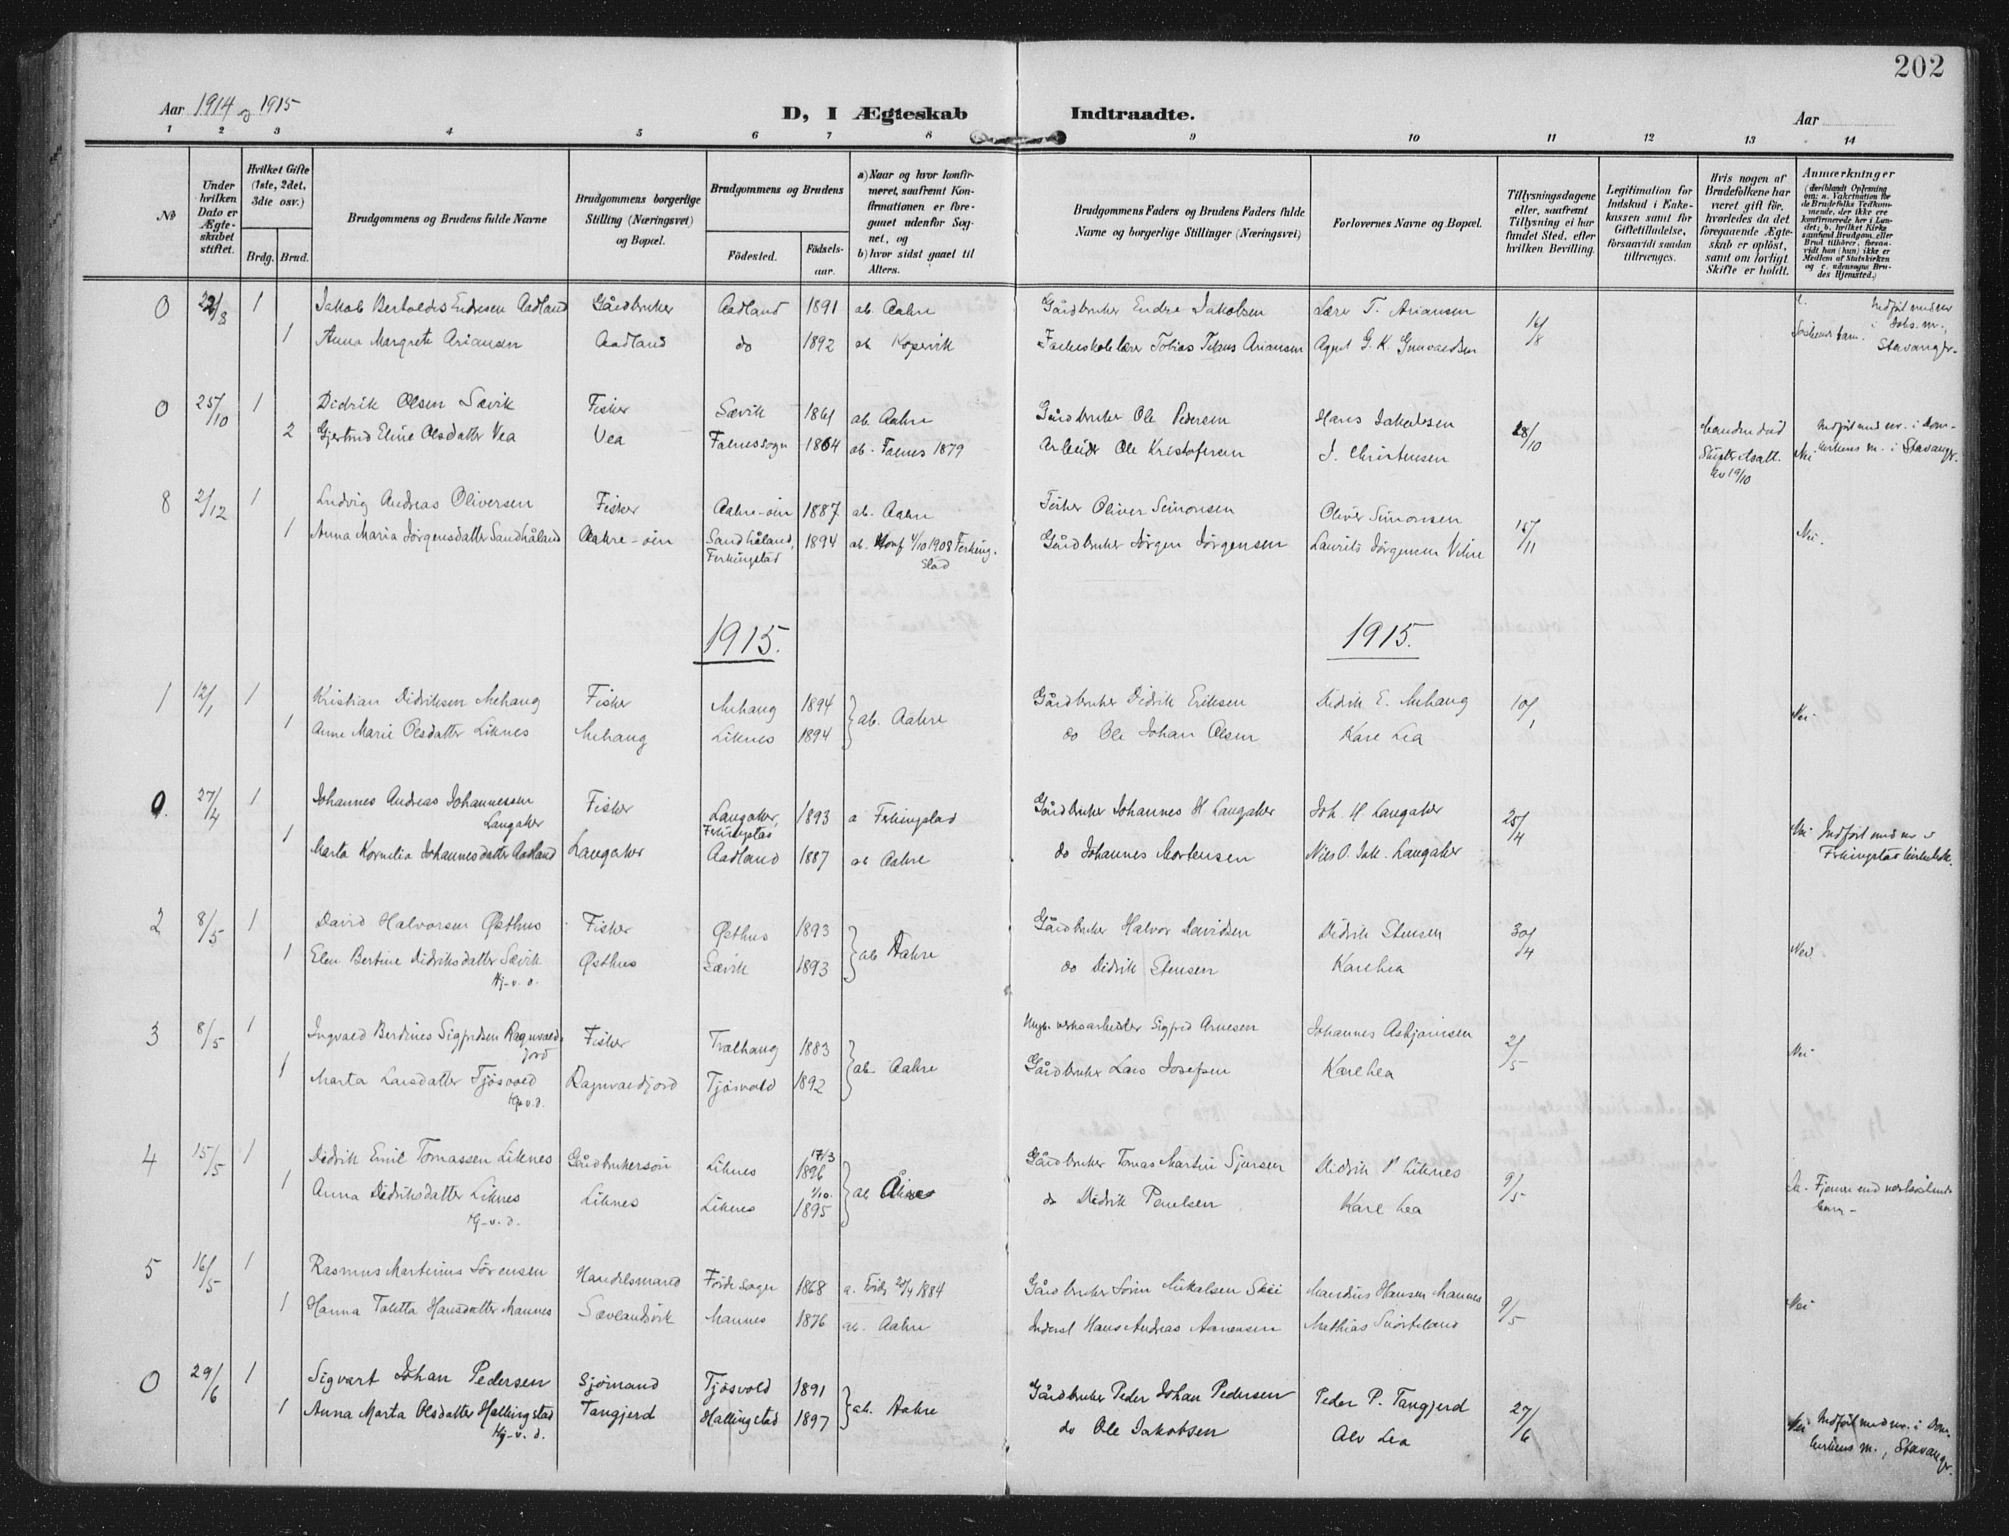 202
Aar 1914 og 1915
D, I Ægteskab Indtraadte.
Aar
1 2 3 4 5 6 7 8 9 10 11 12 13 14
No
Under hvilken Dato er Ægteskabet stiftet.
Hvilket Gifte (1ste, 2det, 3die osv.)
Brdg. Brud.
Brudgommens og Brudens fulde Navne
Brudgommens borgerlige Stilling (Næringsvei) og Bopæl.
Brudgommens og Brudens
Födested.
Födsels-aar.
a) Naar og hvor konfirmeret, saafremt Konfirmationen er foregaaet udenfor Sognet, og
b) hvor sidst gaaet til Alters.
Brudgommens Faders og Brudens Faders fulde Navne og borgerlige Stillinger (Næringsvei)
Forlovernes Navne og Bopæl.
Tillysningsdagene eller, saafremt Tillysning ei har fundet Sted, efter hvilken Bevilling.
Legitimation for Indskud i Enkekassen samt for Giftetilladelse, forsaavidt saadan tiltrænges.
Hvis nogen af Brudefolkene har været gift før, hvorledes da det foregaaende Ægteskab er oplöst, samt om lovligt Skifte er holdt.
Anmærkninger
0 22/8 1 Jakob Bertoldis Endresen Aadland Gårdbruker Aadland 1891 ab. Aakre Gårdbruker Endre Jakobsen Lærer T. Ariansen 16/8
1 Anna Margrete Ariansen Aadland do 1892 ab Kopervik Tobias Ariansen Agent G. K.
Indført med nr i Joh. m., Stavanger
0 25/10 1 Didrik Olsen Sævik Fisker Sævik 1861 ab. Aakre Gårdbruker Ole Pedersen Hans Jakobsen 18/10
2 Gjertrud Eline Olsdatter Vea Vea Falnes sogn 1864 ab. Falnes 1879 Arbeider Ole Kristofersen J. Christensen
Manden død Skifteretsatt. av 19/10
Nei Indført med nr. i Domkirkens m. i Stavanger.
8 2/12 1 Ludvig Andreas Oliversen Fisker Aakre-øen 1887 ab. Aakre Fisker Oliver Simonsen Oliver Simonsen 15/11
1 Anna Maria Jörgensdatter Sandhåland Aakre-øen Sandhåland, Ferkingstad 1894 ab. Konf 4/10 1908 Ferkingstad Gårdbruker Jörgen Jörgensen Laurits Jörgensen Vikre Nei.
1915. 1915.
1 12/1 1 Kristian Didriksen Mehaug Fisker Mehaug 1894 ab. Aakre Gårdbruker Didrik Eriksen Didrik E. Mehaug 10/1
1 Anne Marie Olsdatter Liknes Mehaug Liknes 1894 do Ole Johan Olsen Kare Lea Nei
0 27/4 1 Johannes Andreas Johannessen Langaker Fisker Langaker, Ferkingstad 1893 a Ferkingstad Gårdbruker Johannes H Langaker Joh. H. Langaker 25/4
1 Marta Kornelia Johannesdatter Aadland Langaker Aadland 1887 ab Aakre do Johannes Mortensen Nils O. Jak. Langaker
Nei Indført med nr i Ferkingstad kirkebok.
2 8/5 1 David Halvorsen Østhus Fisker Østhus 1893 ab Aakre Gårdbruker Halvor Davidsen Didrik Stensen 30/4
1 Elen Bertine Didriksdatter Sævik Østhus Sævik 1893 do Didrik Stensen Kare Lea Nei
Hj-v. d.
3 8/5 1 Ingvald Berdines Sigfredsen Ragnvaldjord Fisker Trælhaug 1883 ab. Aakre Sigfred Arnesen Johannes Asbjørnsen 2/5
1 Marta Larsdatter Tjösvold Ragnvaldjord Tjösvold 1892 Gårdbruker Lars Josefsen Kare Lea Nei
Hj-v. d.
4 15/5 1 Didrik Emil Tomassen Liknes Gårdbrukersøn Liknes 17/3 1896 ab Åkre Gårdbruker Tomas Martin Sjursen Didrik P Liknes 9/5
1 Anna Didriksdatter Liknes Liknes Liknes 1/10. 1895 do Didrik Paulsen Kare Lea
Hj-v. d.
5 16/5 1 Rasmus Martinius Sörensen Handelsmand Förde sogn 1868 a. Förde 20/4 1884 Gårdbruker Sörin Mikalsen Skei Mandius Hansen Mannes 9/5
1 Hanna Taletta Hansdatter Mannes Sævelandsvik Mannes 1876 ab. Aakre Inderst Hans Andreas Aanensen Mathias Snörteland Nei
0 29/6 1 Sigvart Johan Pedersen Sjømand Tjösvold 1891 ab. Aakre Gårdbruker Peder Johan Pedersen Peder P. Tangjerd 27/6
1 Anna Marta Olsdatter Hallingstad Tangjerd Hallingstad 1897 do Ole Jakobsen Alv Lea
Hj-v. d.
Nei Indført med nr. i Domkirkens m., Stavanger.